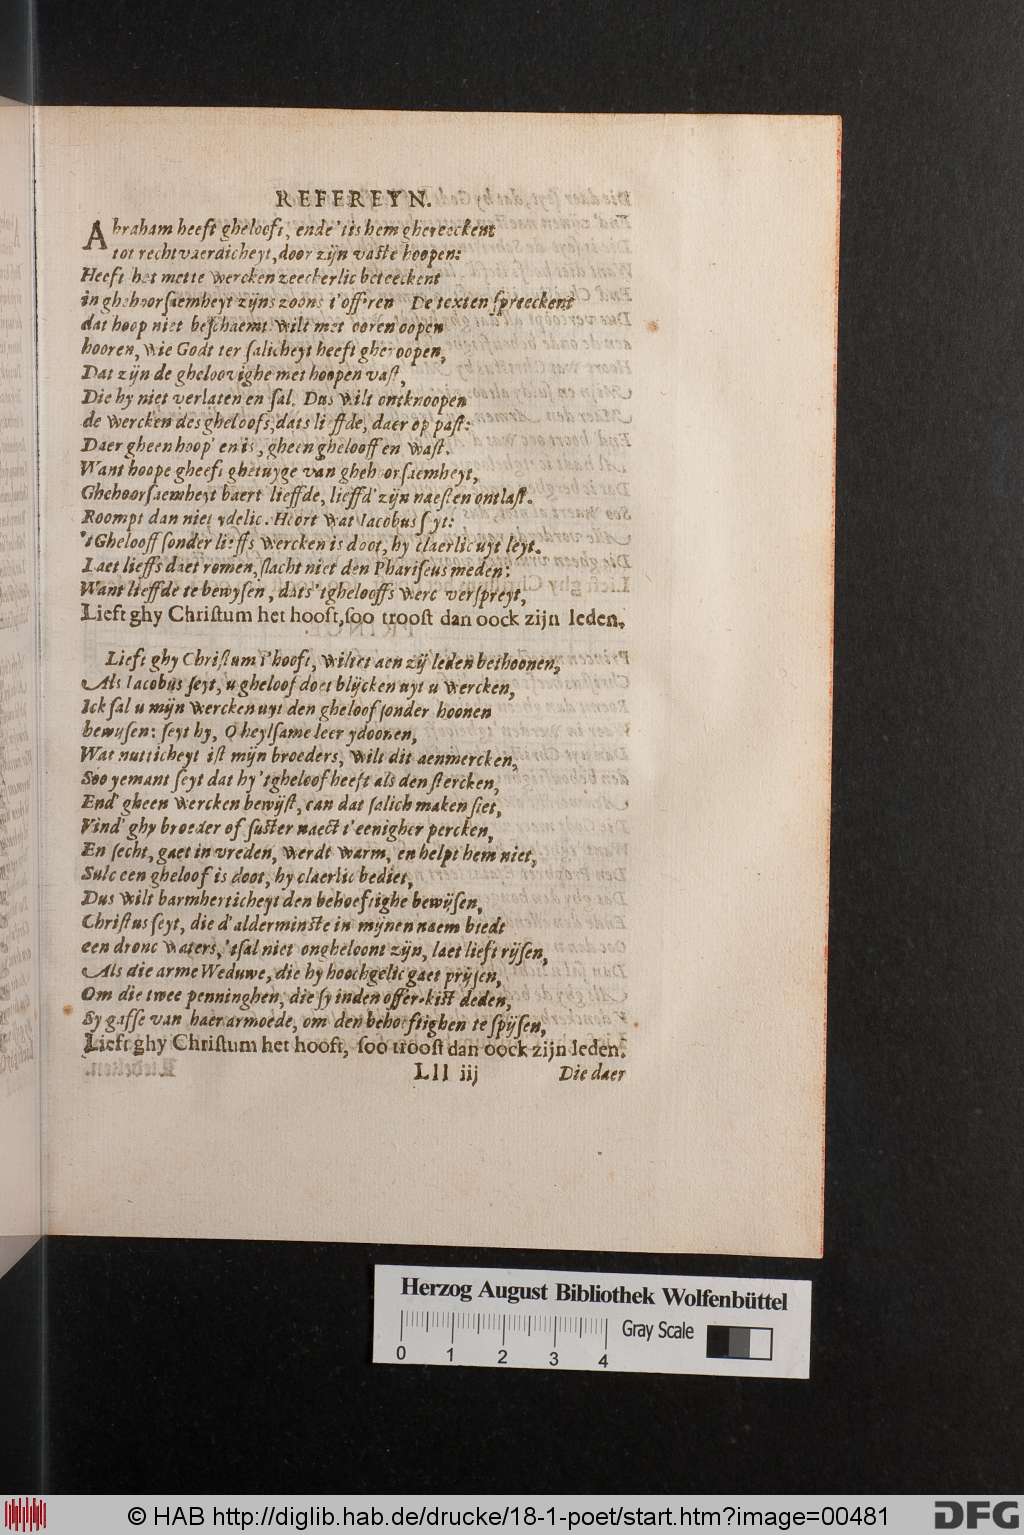 REFEREYN.
Abraham heeft ghelooft, ende 'tis hem ghereeckent
tot rechtvaerdicheyt, door zijn vaste hoopen:
Heeft het mette wercken zeeckerlic beteeckent
in ghehoorsaemheyt zijns zoons t'offeren De texten spreeckent
dat hoop niet beschaemt wilt met ooren oopen
hooren, wie Godt ter salicheyt heeft gheroopen,
Dat zijn de gheloovighe met hoopen vast,
Die hy niet verlaten en sal. Dus wilt ontknoopen
de wercken des gheloofs, dats lieffde, daer op past:
Daer gheen hoop' en is, gheen ghelooff en wast.
Want hoope gheeft ghetuyge van ghehoorsaemheyt,
Ghehoorsaemheyt baert lieffde, lieffd' zijn naesten ontlast.
Roompt dan niet ydelic. Hoort wat Iacobus seyt:
'tGhelooff sonder lieffs wercken is doot, hy claerlic uyt leyt.
Laet lieffs daet romen, slacht niet den Phariseus meden:
Want lieffde te bewysen, dats 'tghelooffs werc verspreyt,
Lieft ghy Christum het hooft, soo troost dan oock zijn leden.
Lieft ghy Christum t'hooft, wiltet aen zij leden bethoonen,
Als Iacobus seyt, u gheloof doet blijcken uyt u wercken,
Ick sal u mijn wercken uyt den gheloof sonder hoonen
bewysen: seyt hy, O heylsame leer ydoonen,
Wat nutticheyt ist mijn broeders, wilt dit aenmercken,
Soo yemant seyt dat hy 'tgheloof heeft als den stercken,
End' gheen wercken bewijst, can dat salich maken siet,
Vind' ghy broeder of suster naect t'eenigher percken,
En secht, gaet in vreden, werdt warm, en helpt hem niet,
Sulc een gheloof is doot, hy claerlic bediet,
Dus wilt barmherticheyt den behoeftighe bewijsen,
Christus seyt, die d'alderminste in mijnen naem biedt
een dronc waters, 'tsal niet ongheloont zijn, laet lieft rijsen,
Als die arme Weduwe, die hy hoochgelic gaet prijsen,
Om die twee penninghen, die sy inden offer-kist deden,
Sy gaffe van haer armoede, om den behoeftighen te spijsen,
Lieft ghy Christum het hooft, soo troost dan oock zijn leden.
Lll iij Die daer
Herzog August Bibliothek Wolfenbüttel
Gray Scale
0 1 2 3 4
© HAB http://diglib.hab.de/drucke/18-1-poet/start.htm?image=00481
DFG